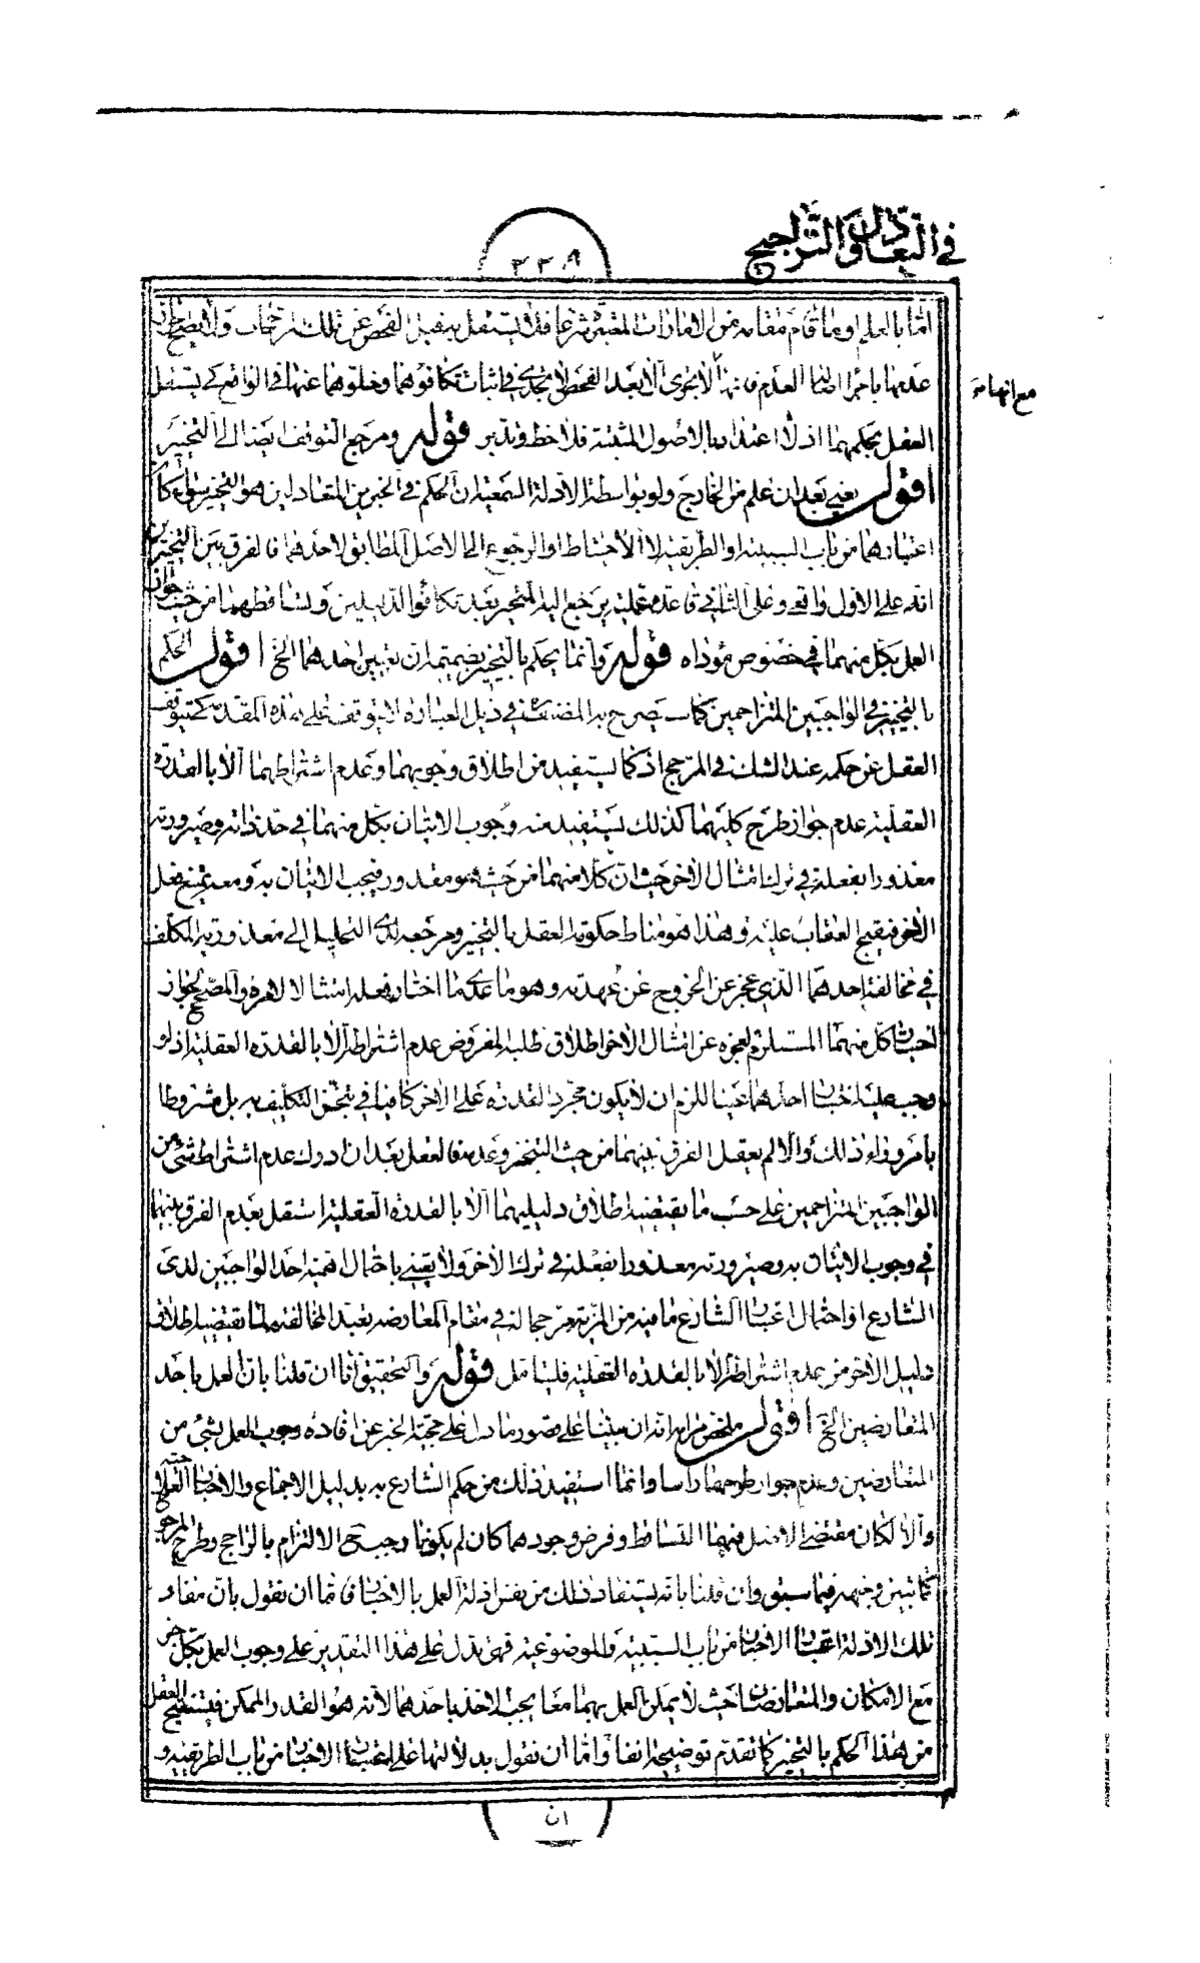 في التعادل والتراجيح
٢٢٩
امّا بالعلم او ما قام مقامه من الامارات المعتبرة شرعا فلا يستقل به قبل الفحص عن تلك المرجحات ولا يصح احراز
عدمها باجراء اصالة العدم فانها لا تجرى الا بعد الفحص لا يجدى في اثبات تكافؤهما وخلوهما عنها في الواقع كى يستقل
مع انها
العقل بحكمهما اذ لا اعتداد بالاصول المثبتة فلاحظ وتدبر قوله ومرجع التوقف ايضا الى التخيير
اقول يعني بعد ان علم من الخارج ولو بواسطة الادلة السمعية ان الحكم في الخبرين المتعادلين هو التخيير سواء كان
اعتبارهما من باب السببية او الطريقية لا الاحتياط او الرجوع الى الاصل المطابق لاحدهما فالفرق بين التخييرين
انه على الاول واقعي وعلى الثاني قاعدة عملية يرجع اليه المتحير بعد تكافؤ الدليلين وتساقطهما من حيث جواز
العمل بكل منهما في خصوص مؤداه قوله وانما يحكم بالتخيير بضميمة ان تعيين احدهما الخ اقول الحكم
بالتخيير في الواجبين المتزاحمين كما سيصرح به المصنف في ذيل العبارة لا يتوقف على هذه المقدمة كى يتوقف
العقل عن حكمه عند الشك في المرجح اذ كما يستفيد من اطلاق وجوبهما وعدم اشتراطهما الا بالقدرة
العقلية عدم جواز طرح كليهما كذلك يستفيد منه وجوب الاتيان بكل منهما في حد ذاته وصيرورته
معذورا بفعله في ترك امتثال الاخر حيث ان كلا منهما من حيث هو مقدور فيجب الاتيان به ومعه يمتنع فعل
الاخر فيقبح العقاب عليه وهذا هو مناط حكومة العقل بالتخيير ومرجعه لدى التحليل الى معذورية المكلف
في مخالفة احدهما الذي عجز عن الخروج عن عهدته وهو ما عدى ما اختار فعله امتثالا لامره والمصحح لجواز
اختيار كل منهما المستلزم لعجزه عن امتثال الاخر اطلاق طلبه المفروض عدم اشتراطه الا بالقدرة العقلية اذ لو
وجب عليه اختيار احدهما عينا للزم ان لا يكون مجرد القدرة على الاخر كافيا في تحقق التكليف به بل مشروطا
بامر وراء ذلك والا لم يعقل الفرق بينهما من حيث التخيير وعدمه فالعقل بعد ان ادرك عدم اشتراط شئ من
الواجبين المتزاحمين على حسب ما يقتضيه اطلاق دليليهما الا بالقدرة العقلية استقل بعدم الفرق بينهما
في وجوب الاتيان به وصيرورته معذورا بفعله في ترك الاخر ولا يعتني باحتمال اهمية احد الواجبين لدى
الشارع او احتمال اعتبار الشارع ما فيه من المزية مرجحا له في مقام المعارضة بعد مخالفته لما يقتضيه اطلاق
دليل الاخر من عدم اشتراطه الا بالقدرة العقلية فليتامل قوله والتحقيق انا ان قلنا بان العمل باحد
المتعارضين الخ اقول ملخص مرامه انه ان بنينا على قصور ما دل على حجية الخبر عن افادة وجوب العمل بشئ من
المتعارضين وعدم جواز طرحهما راسا وانما استفيد ذلك من حكم الشارع به بدليل الاجماع والاخبار العلاجية
والا لكان مقتضى الاصل فيهما التساقط وفرض وجودهما كان لم يكونا وجب ح الالتزام بالراجح وطرح المرجوح
كما تبين وجهه فيما سبق وان قلنا بانه يستفاد ذلك من نفس ادلة العمل بالاخبار فاما ان نقول بان مفاد
تلك الادلة اعتبار الاخبار من باب السببية والموضوعية فهى تدل على هذا التقدير على وجوب العمل بكل خبر
مع الامكان والمتعارضان حيث لا يمكن العمل بهما معا يجب الاخذ باحدهما لانه هو القدر الممكن فيستنتج العقل
من هذا الحكم بالتخيير كما تقدم توضيحه انفا واما ان نقول بدلالتها على اعتبار الاخبار من باب الطريقية و
ان